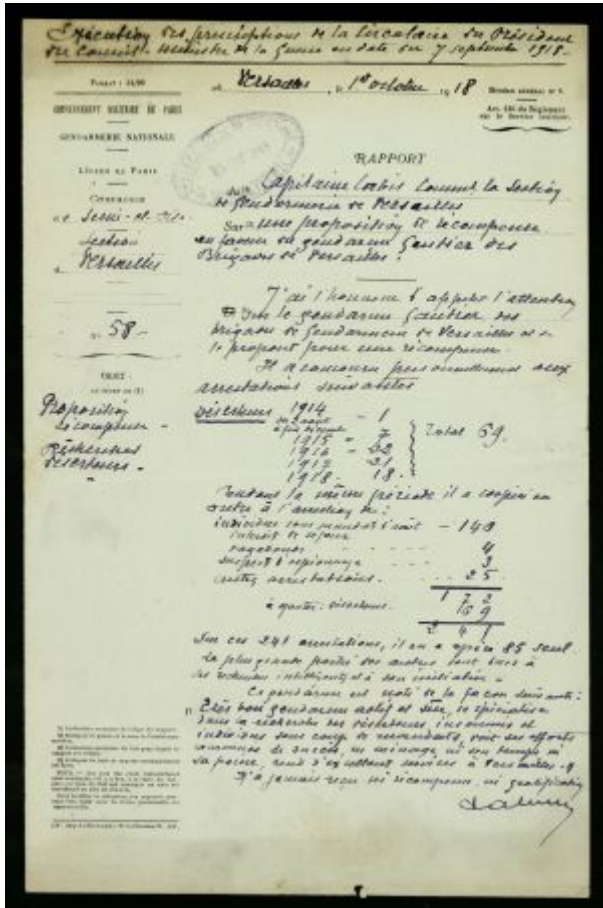 Exécution des prescriptions de la Circulaire du Président
du Conseil, Ministre de la Guerre en date du 7 septembre 1918.
Format : 21/30
GOUVERNEMENT MILITAIRE DE PARIS
GENDARMERIE NATIONALE
LÉGION DE PARIS
COMPAGNIE
de Seine-et-Oise
Section
de Versailles
N° 58
OBJET
Proposition
récompense
Recherches
déserteurs
Versailles, le 1er octobre 1918
Art. 116 du Règlement
sur le Service intérieur.
RAPPORT
du Capitaine Commt la Section
de gendarmerie de Versailles
Sur une proposition de récompense
en faveur du gendarme Gautier des
Brigades de Versailles.
J'ai l'honneur d'appeler l'attention
sur le gendarme Gautier des
brigades de gendarmerie de Versailles et
le propose pour une récompense.
Il a concouru personnellement aux
arrestations suivantes
Déserteurs 1914 - 1
1915 - 7
1916 - 22
1917 - 21
1918 - 18
Total 69.
Pendant la même période il a coopéré en
outre à l'arrestation de :
individus sous mandat d'arrêt - 140
interdit de séjour
vagabonds 4
suspect d'espionnage 3
autres arrestations. 25
172
à ajouter : déserteurs. 69
241
Sur ces 241 arrestations, il en a opéré 85 seul.
La plus grande partie des autres sont dues à
ses recherches et à son initiative.
Ce gendarme est noté de la façon suivante :
" Très bon gendarme actif et sûr, se spécialise
dans la recherche des déserteurs, insoumis et
individus sous coup de mandats, voit ses efforts
couronnés de succès, ne ménage ni son temps ni
sa peine, rend d'excellents services à Versailles. "
N'a jamais reçu ni récompense, ni gratification